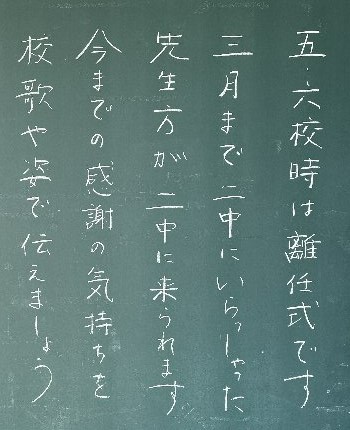 五・六校時は離任式です
三月まで二中にいらっしゃった
先生方が二中に来られます
今までの感謝の気持ちを
校歌や姿で伝えましょう